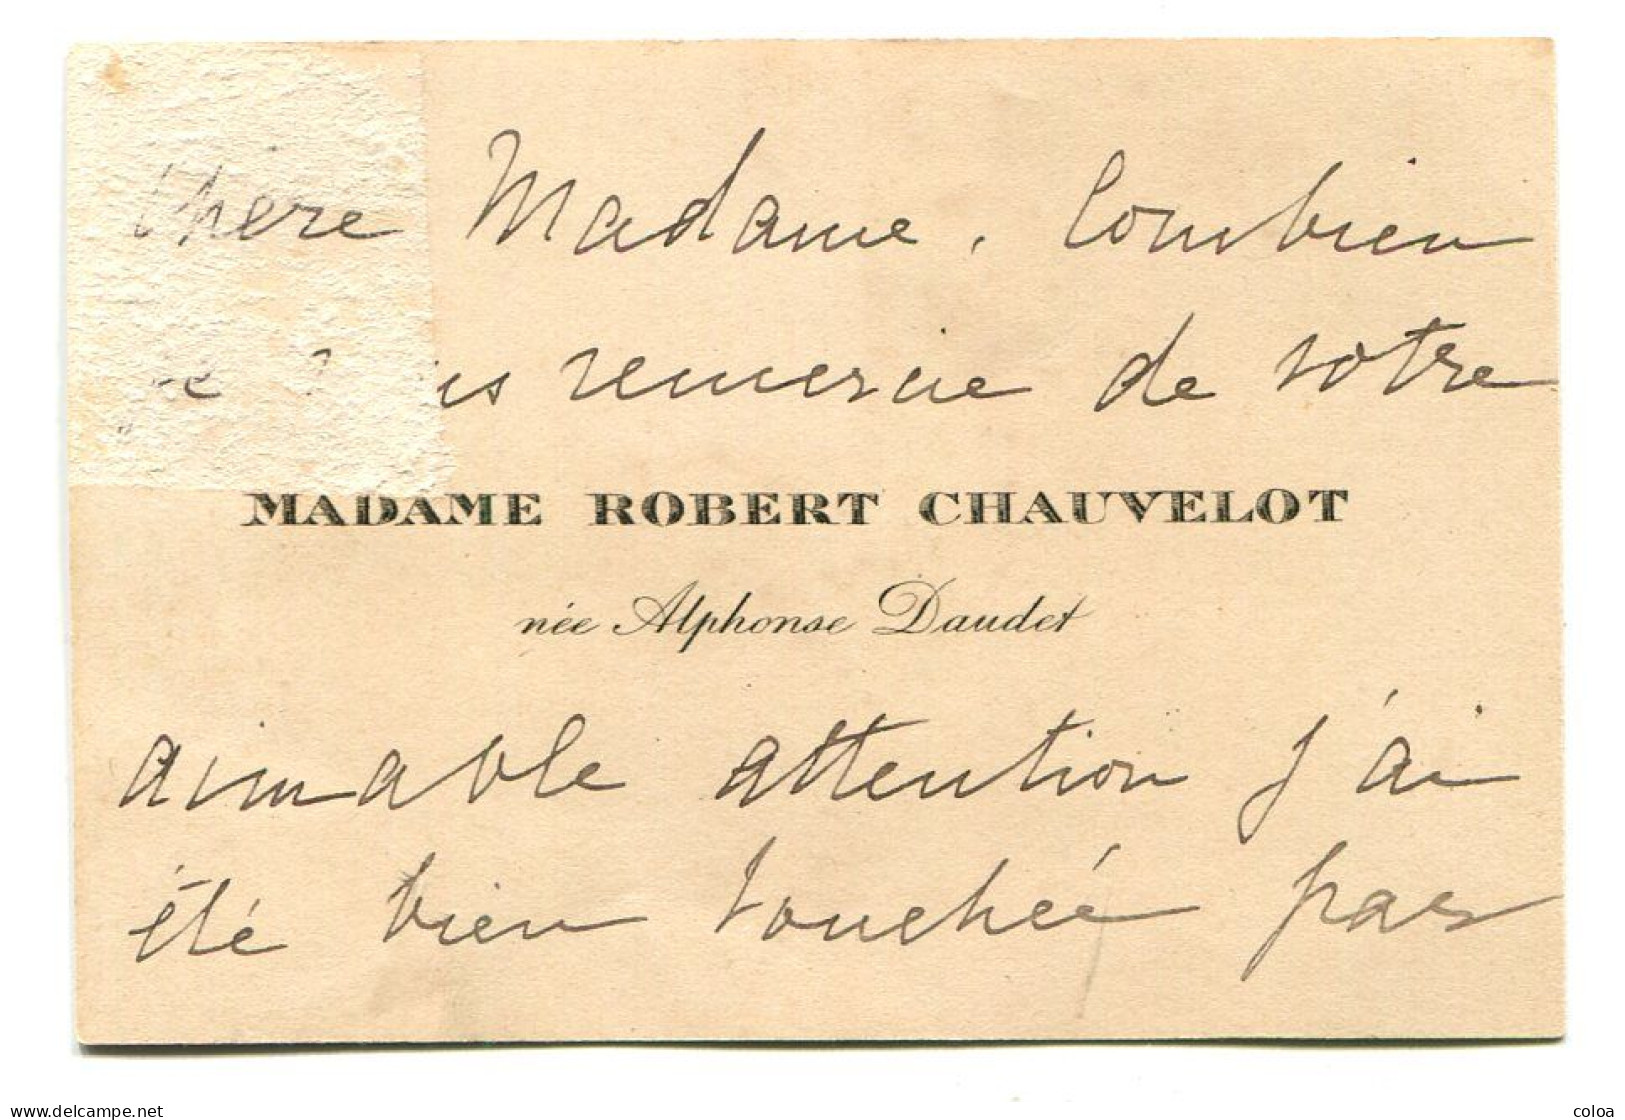 Chère Madame. Combien
je vous remercie de votre
MADAME ROBERT CHAUVELOT
née Alphonse Daudet
aimable attention j'ai
été bien touchée par
www.delcampe.net
coloa